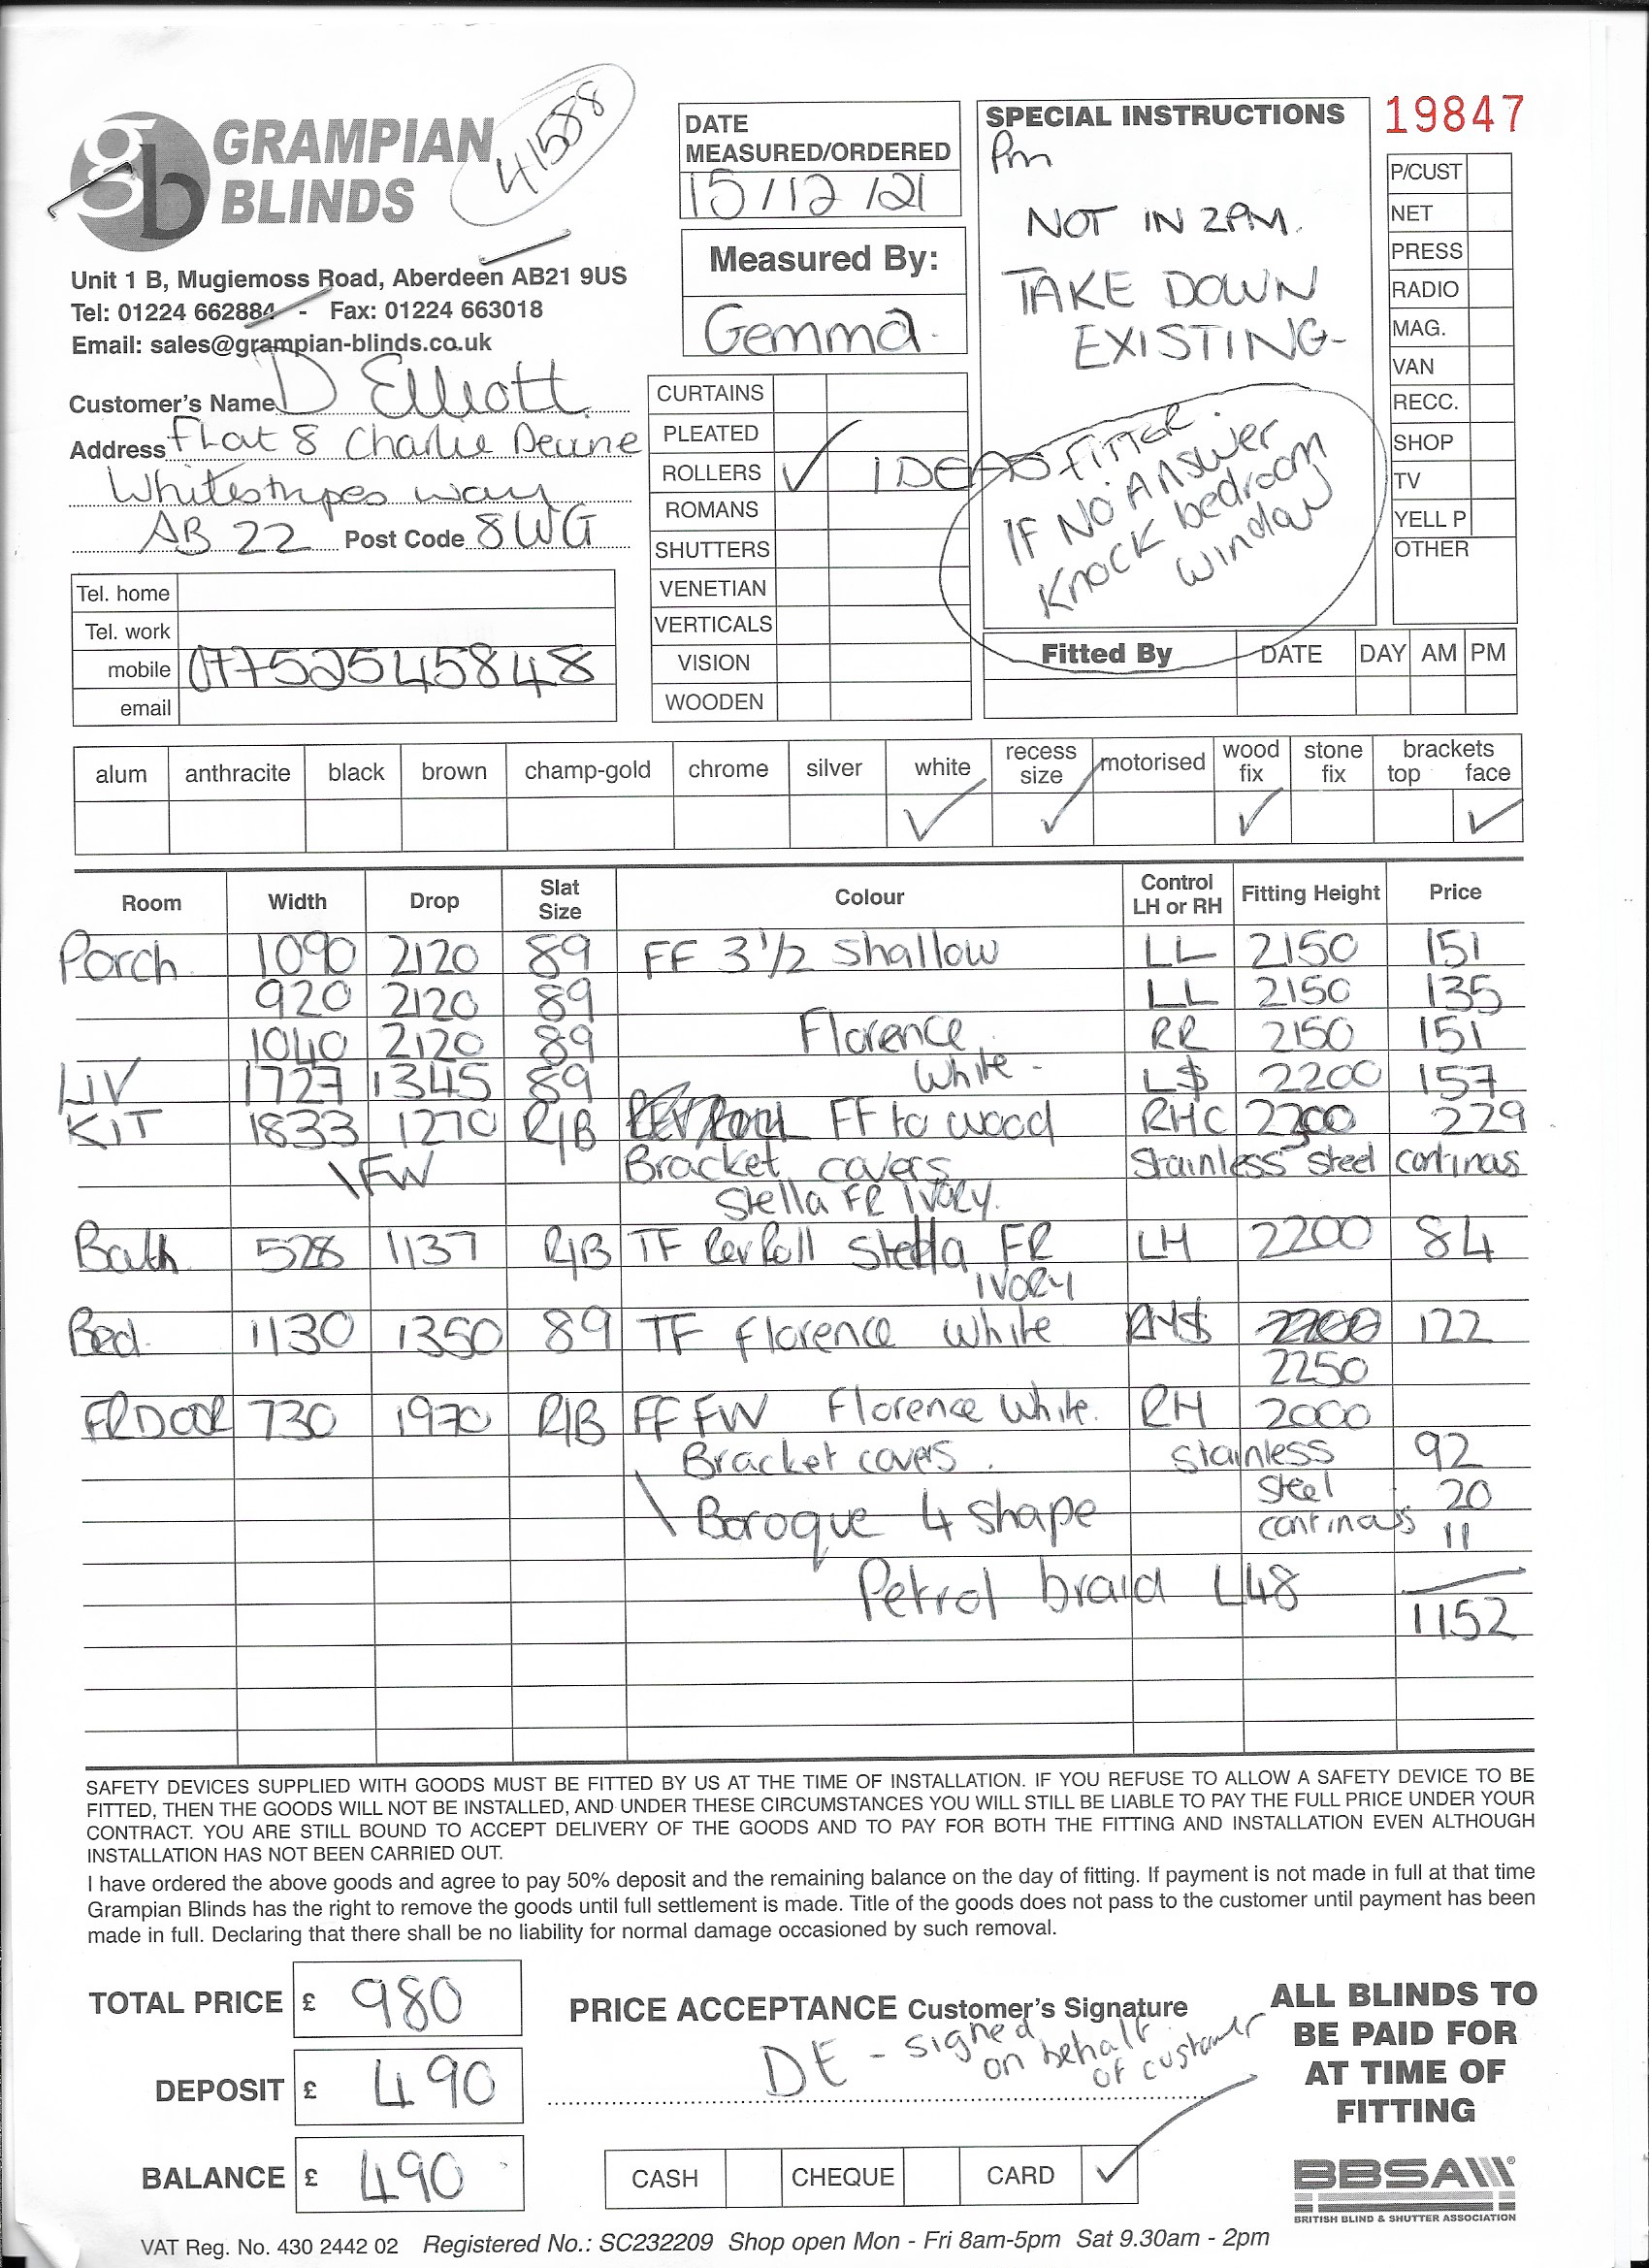 GRAMPIAN
BLINDS
41588
Unit 1 B, Mugiemoss Road, Aberdeen AB21 9US
Tel: 01224 662884 - Fax: 01224 663018
Email: sales@grampian-blinds.co.uk
Customer's Name D Elliott
Address Flat 8 Charlie Devine
Whitestripes way
AB 22 Post Code 8WG
Tel. home
Tel. work
mobile 07752545848
email
DATE
MEASURED/ORDERED
15/12/21
Measured By:
Gemma
CURTAINS
PLEATED
ROLLERS ✓ IDEAS FITTER
ROMANS
SHUTTERS
VENETIAN
VERTICALS
VISION
WOODEN
SPECIAL INSTRUCTIONS
Pm
NOT IN 2PM.
TAKE DOWN
EXISTING
IF NO ANSWER
KNOCK bedroom
window
Fitted By DATE DAY AM PM
19847
P/CUST
NET
PRESS
RADIO
MAG.
VAN
RECC.
SHOP
TV
YELL P
OTHER
alum anthracite black brown champ-gold chrome silver white recess size motorised wood fix stone fix brackets top face
✓ ✓ ✓ ✓
Room Width Drop Slat Size Colour Control LH or RH Fitting Height Price
Porch 1090 2120 89 FF 3 1/2 shallow LL 2150 151
920 2120 89 LL 2150 135
1040 2120 89 Florence RR 2150 151
LIV 1727 1345 89 White - L$ 2200 157
KIT 1833 1270 R/B FF to wood RHC 2200 229
\FW Bracket covers Stainless steel continas
Stella FR IVORY.
Bath 528 1137 R/B TF Rev Roll Stella FR LH 2200 84
IVORY
Bed. 1130 1350 89 TF Florence White RH$ 2200 122
2250
FRDOOR 730 1970 R/B FF FW Florence White. RH 2000
Bracket covers. stainless 92
\ Baroque 4 shape steel 20
continas 11
Petrol braid L48
1152
SAFETY DEVICES SUPPLIED WITH GOODS MUST BE FITTED BY US AT THE TIME OF INSTALLATION. IF YOU REFUSE TO ALLOW A SAFETY DEVICE TO BE
FITTED, THEN THE GOODS WILL NOT BE INSTALLED, AND UNDER THESE CIRCUMSTANCES YOU WILL STILL BE LIABLE TO PAY THE FULL PRICE UNDER YOUR
CONTRACT. YOU ARE STILL BOUND TO ACCEPT DELIVERY OF THE GOODS AND TO PAY FOR BOTH THE FITTING AND INSTALLATION EVEN ALTHOUGH
INSTALLATION HAS NOT BEEN CARRIED OUT.
I have ordered the above goods and agree to pay 50% deposit and the remaining balance on the day of fitting. If payment is not made in full at that time
Grampian Blinds has the right to remove the goods until full settlement is made. Title of the goods does not pass to the customer until payment has been
made in full. Declaring that there shall be no liability for normal damage occasioned by such removal.
TOTAL PRICE £ 980
DEPOSIT £ 490
BALANCE £ 490
PRICE ACCEPTANCE Customer's Signature
DE - signed
on behalf
of customer
CASH CHEQUE CARD ✓
ALL BLINDS TO
BE PAID FOR
AT TIME OF
FITTING
BBSA
BRITISH BLIND & SHUTTER ASSOCIATION
VAT Reg. No. 430 2442 02 Registered No.: SC232209 Shop open Mon - Fri 8am-5pm Sat 9.30am - 2pm